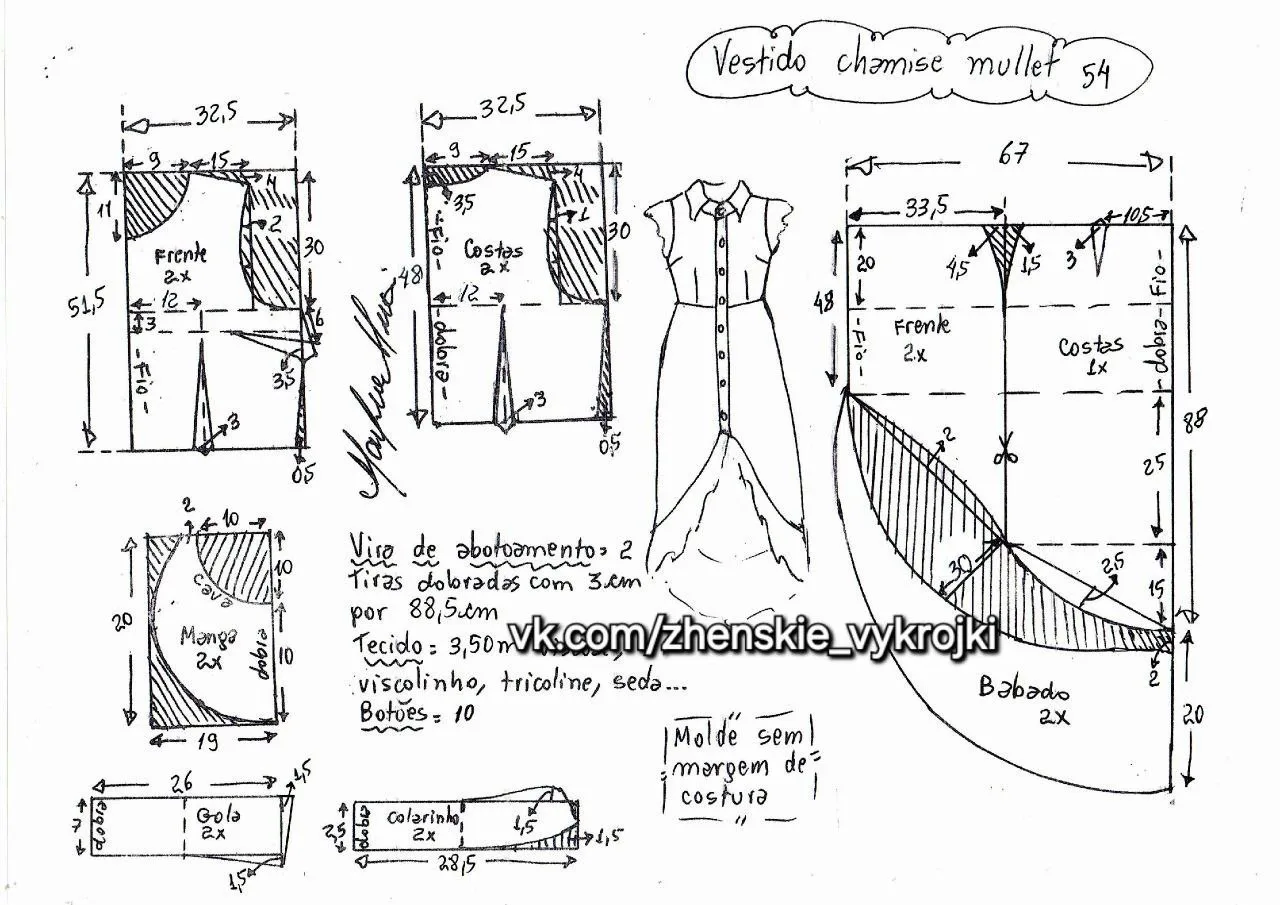 Vestido chamise mullet 54
32,5
9
15
4
11
2
30
Frente
2x
51,5
12
3
6
Fio
3,5
3
0,5
32,5
9
15
4
3,5
1
Fio
Costas
2x
30
48
12
dobra
3
0,5
67
33,5
10,5
20
4,5
1,5
3
48
Frente
2x
Fio
Costas
1x
dobra-Fio-
88
2
25
30
2,5
15
2
Babado
2x
20
2
10
10
cava
20
Manga
2x
dobra
10
19
Vira de abotoamento= 2
Tiras dobradas com 3cm
por 88,5cm
Tecido= 3,50m
viscolinho, tricoline, seda...
Botões= 10
vk.com/zhenskie_vykrojki
Molde sem
margem de
costura
26
1,5
7
dobra
Gola
2x
1,5
2,5
dobra
Colarinho
2x
1,5
1,5
28,5